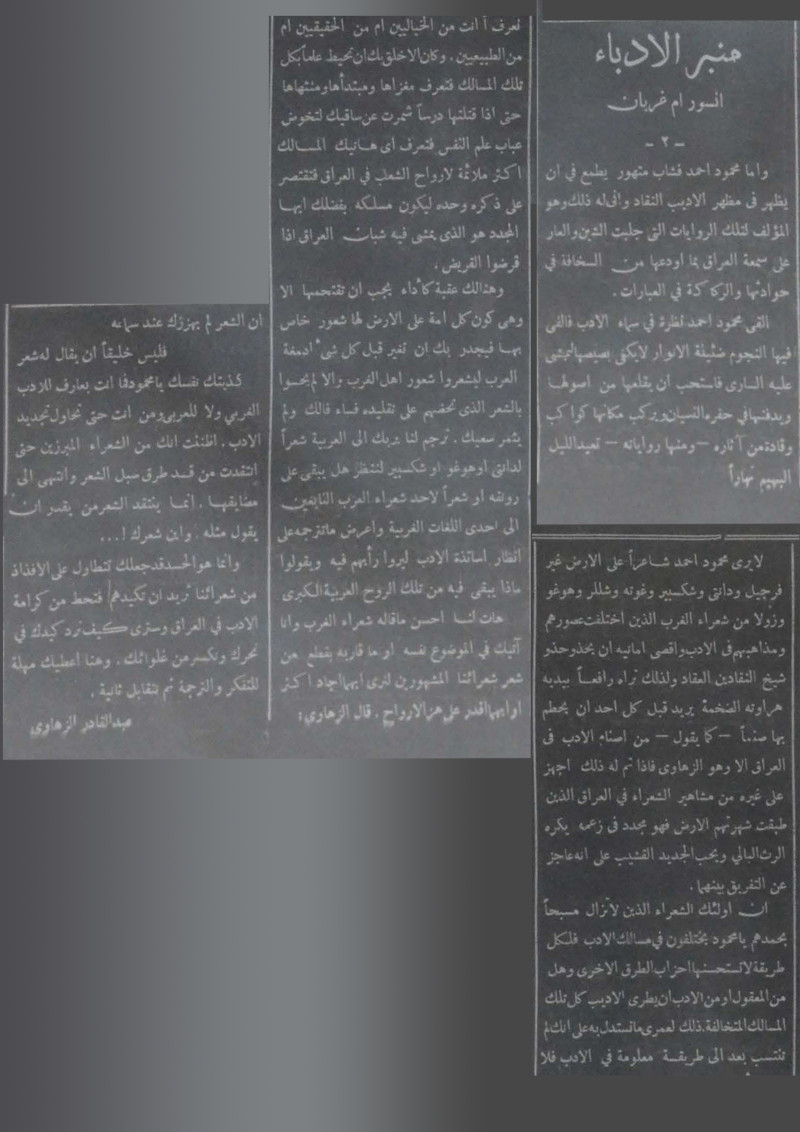 منبر الادباء
انسور ام غربان
— ٢ —
واما محمود احمد فشاب متهور يطمع في ان
يظهر في مظهر الاديب النقاد وانى له ذلك وهو
المؤلف لتلك الروايات التي جلبت الشين والعار
على سمعة العراق بما اودعها من السخافة في
حوادثها والركاكة في العبارات .
القى محمود احمد نظرة في سماء الادب فالفى
فيها النجوم ضئيلة الانوار لا يكفى بصيصها لتمشى
عليه السارى فاستحب ان يقلعها من اصولها
ويدفنها في حفرة النسيان ويركب مكانها كواكب
وقادة من آثاره — ومنها رواياته — تعيد الليل
البهيم نهاراً
لا يرى محمود احمد شاعراً على الارض غير
فرجيل ودانتى وشكسبير وغوته وشللر وهوغو
وزولا من شعراء الغرب الذين اختلفت عصورهم
ومذاهبهم في الادب واقصى امانيه ان يحذو حذو
شيخ النقادين العقاد ولذلك تراه رافعاً بيديه
هراوته الضخمة يريد قبل كل احد ان يحطم
بها صنماً — كما يقول — من اصنام الادب في
العراق الا وهو الزهاوى فاذا تم له ذلك اجهز
على غيره من مشاهير الشعراء في العراق الذين
طبقت شهرتهم الارض فهو مجدد في زعمه يكره
الرث البالي ويحب الجديد القشيب على انه عاجز
عن التفريق بينهما .
ان اولئك الشعراء الذين لا تزال مسبحاً
بحمدهم يا محمود يختلفون في مسالك الادب فلكل
طريقة لا تستحسنها احزاب الطرق الاخرى وهل
من المعقول او من الادب ان يطرى الاديب كل تلك
المسالك المتخالفة . ذلك لعمرى ما تستدل به على انك لم
تنتسب بعد الى طريقة معلومة في الادب فلا
تعرف أ انت من الخياليين ام من الحقيقيين ام
من الطبيعيين . وكان الاخلق بك ان تحيط علماً بكل
تلك المسالك فتعرف مغزاها ومبتدأها ومنتهاها
حتى اذا قتلتها درساً شمرت عن ساقيك لتخوض
عباب علم النفس فتعرف اى هاتيك المسالك
اكثر ملائمة لارواح الشعب في العراق فتقتصر
على ذكره وحده ليكون مسلكه بفضلك ايها
المجدد هو الذى يمشى فيه شبان العراق اذا
قرضوا القريض .
وهنالك عقبة كأداء يجب ان تقتحمها الا
وهى كون كل امة على الارض لها شعور خاص
بها فيجدر بك ان تغير قبل كل شيء ادمغة
العرب ليشعروا شعور اهل الغرب والا لم يحسوا
بالشعر الذى تحضهم على تقليده فساء فالك ولم
يثمر سعيك . ترجم لنا بربك الى العربية شعراً
لدانتى او هوغو او شكسبير لننظر هل يبقى على
رونقه او شعراً لاحد شعراء العرب النابغين
الى احدى اللغات الغربية واعرض ما تترجمه على
انظار اساتذة الادب ليروا رأيهم فيه ويقولوا
ماذا يبقى فيه من تلك الروح العربية الكبرى
هات لنا احسن ما قاله شعراء الغرب وانا
آتيك في الموضوع نفسه او ما قاربه بقطع من
شعر شعرائنا المشهورين لنرى ايهما اجاد اكثر
او ايهما اقدر على هز الارواح . قال الزهاوى :
ان الشعر لم يهززك عند سماعه
فليس خليقاً ان يقال له شعر
كذبتك نفسك يا محمود فما انت بعارف للادب
الغربي ولا للعربى ومن انت حتى تحاول تجديد
الادب . اظننت انك من الشعراء المبرزين حتى
انتقدت من قد طرق سبل الشعر وانتهى الى
مضايقها . انما ينتقد الشعر من يقدر ان
يقول مثله واين شعرك ! ...
وانما هو الحسد قد جعلك تتطاول على الافذاذ
من شعرائنا تريد ان تكيدهم فتحط من كرامة
الادب في العراق وسترى كيف نرد كيدك في
نحرك ونكسر من غلوائك . وهنا اعطيك مهلة
للتفكر والترجمة ثم نتقابل ثانية .
عبدالقادر الزهاوى